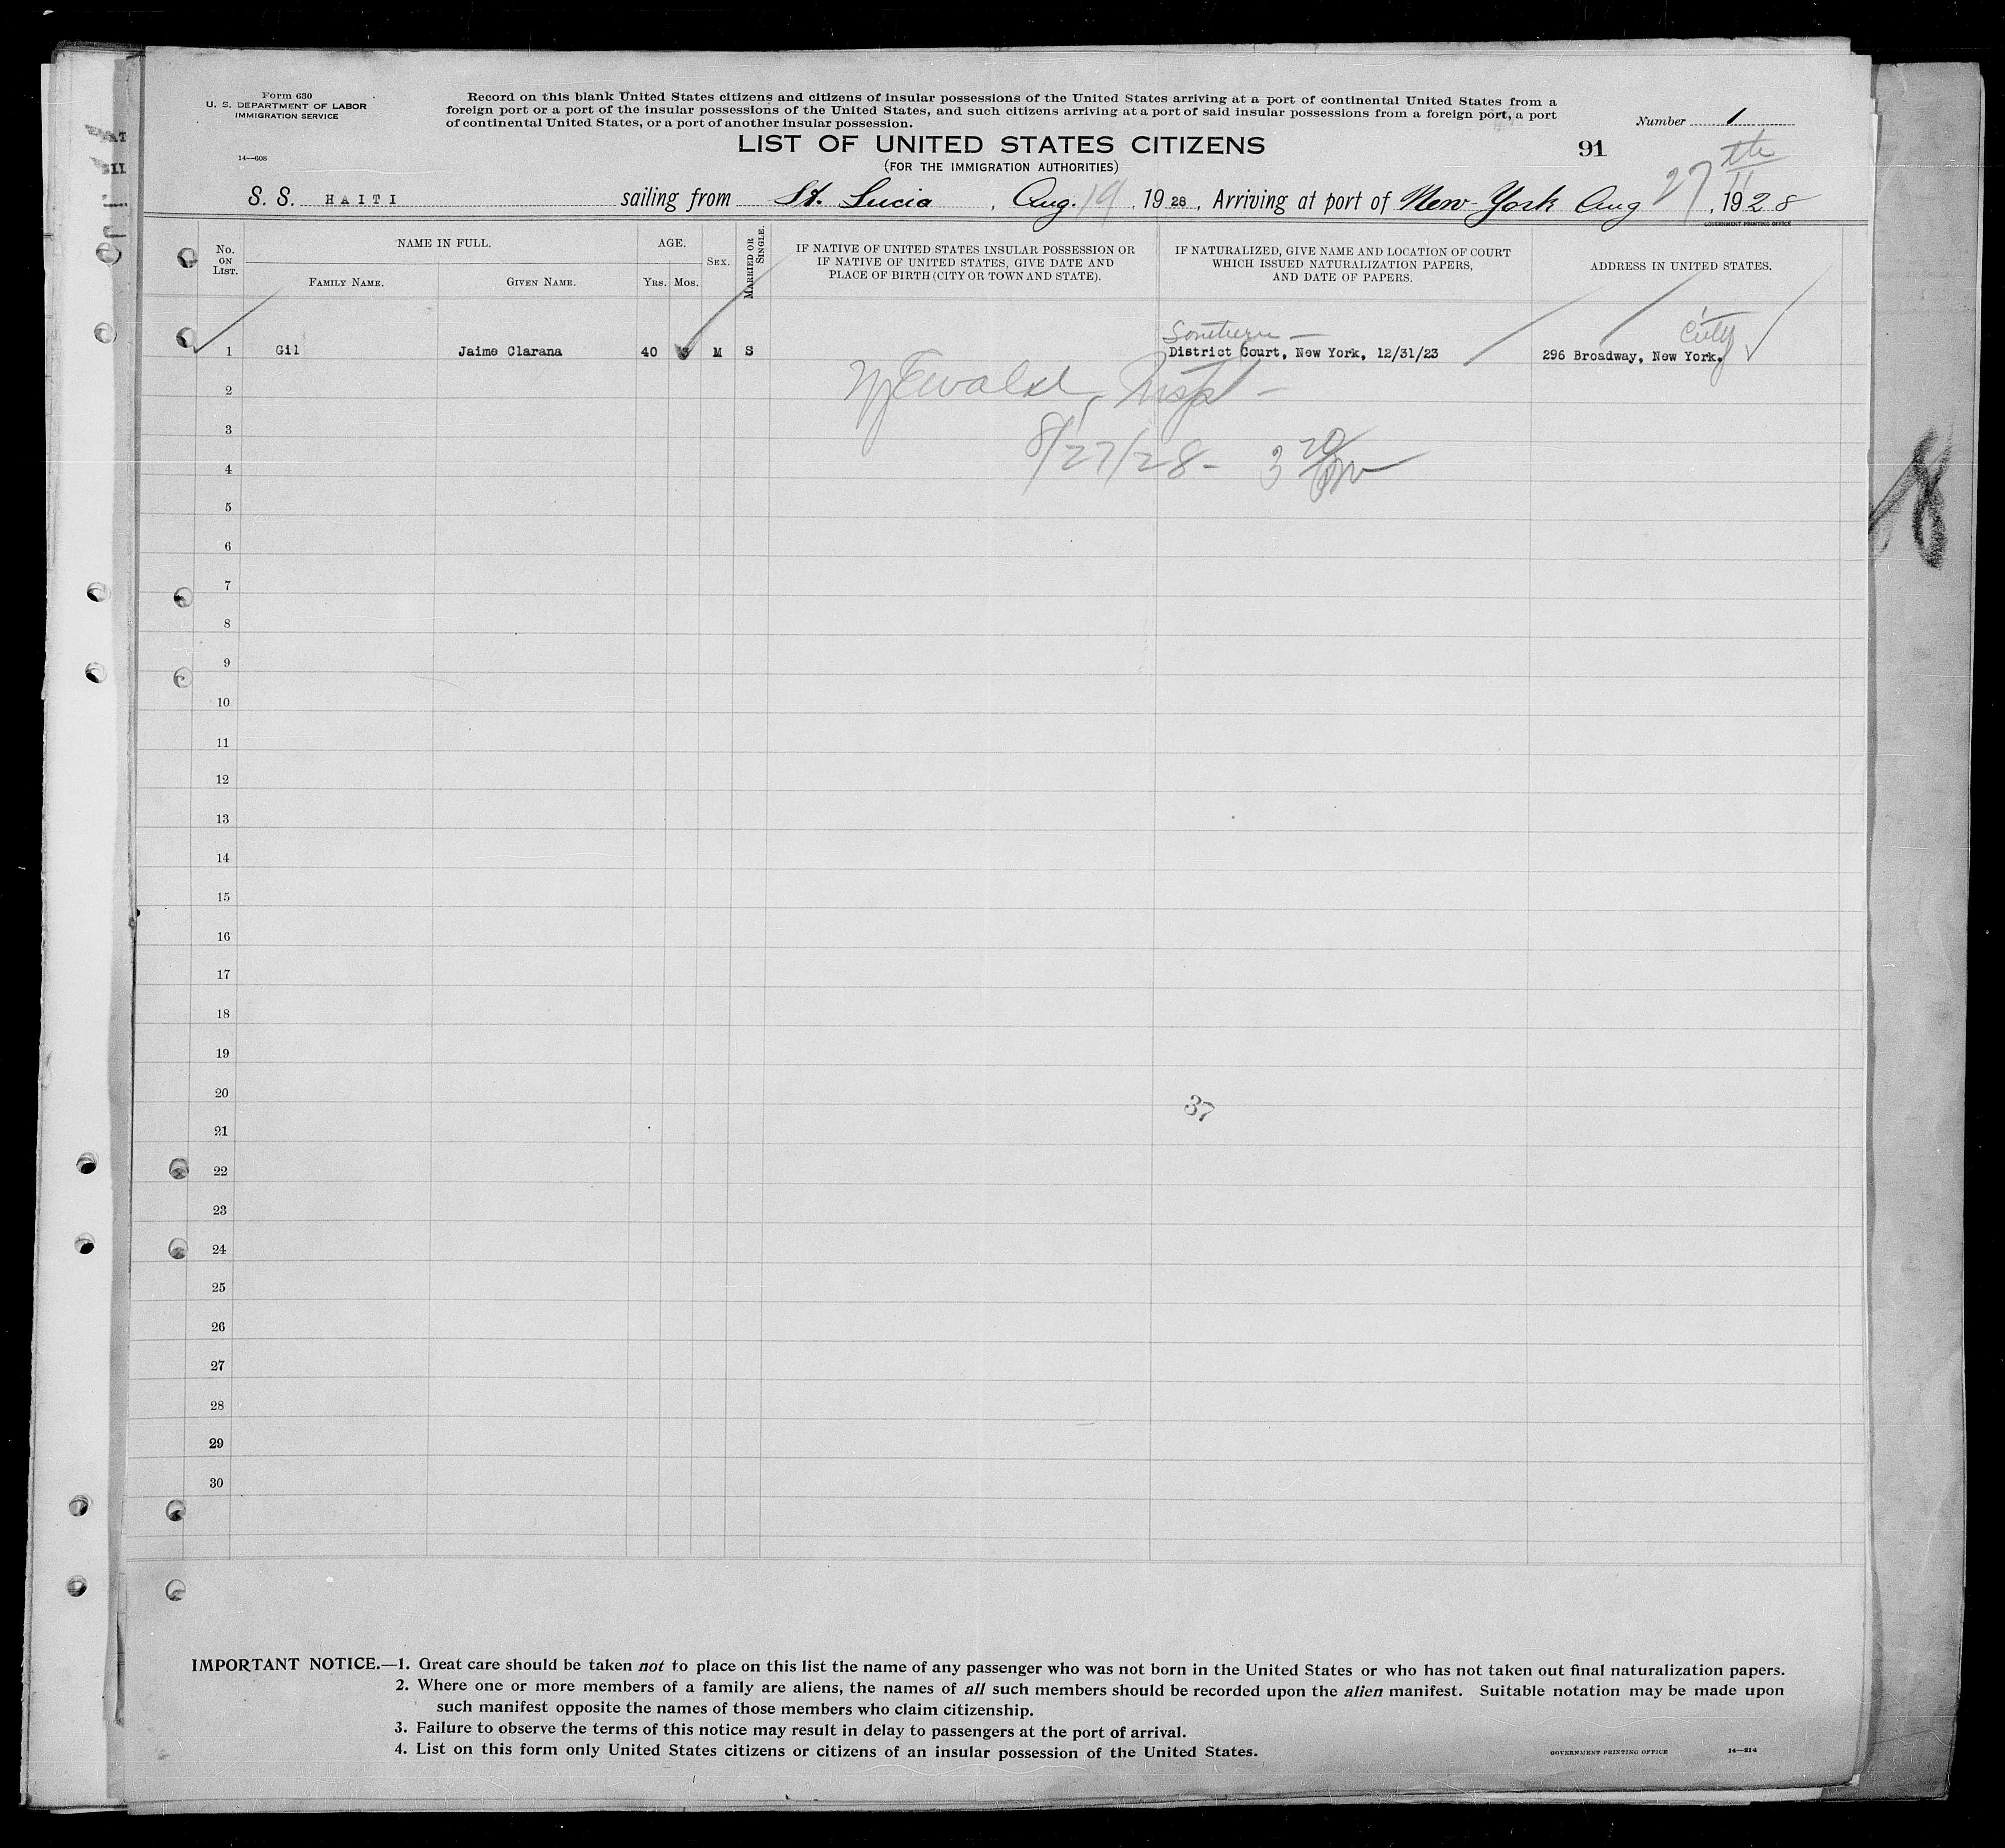 Form 630
U. S. DEPARTMENT OF LABOR
IMMIGRATION SERVICE
14—608
Record on this blank United States citizens and citizens of insular possessions of the United States arriving at a port of continental United States from a
foreign port or a port of the insular possessions of the United States, and such citizens arriving at a port of said insular possessions from a foreign port, a port
of continental United States, or a port of another insular possession.
Number 1
LIST OF UNITED STATES CITIZENS
91
(FOR THE IMMIGRATION AUTHORITIES)
S. S. HAITI sailing from St. Lucia, Aug. 19, 1928, Arriving at port of New-York Aug 27th, 1928
GOVERNMENT PRINTING OFFICE
No. ON LIST.
NAME IN FULL.
FAMILY NAME.
GIVEN NAME.
AGE.
YRS.
MOS.
SEX.
MARRIED OR SINGLE.
IF NATIVE OF UNITED STATES INSULAR POSSESSION OR
IF NATIVE OF UNITED STATES, GIVE DATE AND
PLACE OF BIRTH (CITY OR TOWN AND STATE).
IF NATURALIZED, GIVE NAME AND LOCATION OF COURT
WHICH ISSUED NATURALIZATION PAPERS,
AND DATE OF PAPERS.
ADDRESS IN UNITED STATES.
Southern —
City
1 Gil Jaime Clarana 40 M S District Court, New York, 12/31/23 296 Broadway, New York.
2 Ewald, Insp —
3
8/27/28 - 3 20 pm
4
5
6
7
8
9
10
11
12
13
14
15
16
17
18
19
20
37
21
22
23
24
25
26
27
28
29
30
8
IMPORTANT NOTICE.—1. Great care should be taken not to place on this list the name of any passenger who was not born in the United States or who has not taken out final naturalization papers.
2. Where one or more members of a family are aliens, the names of all such members should be recorded upon the alien manifest. Suitable notation may be made upon
such manifest opposite the names of those members who claim citizenship.
3. Failure to observe the terms of this notice may result in delay to passengers at the port of arrival.
4. List on this form only United States citizens or citizens of an insular possession of the United States.
GOVERNMENT PRINTING OFFICE
14—214